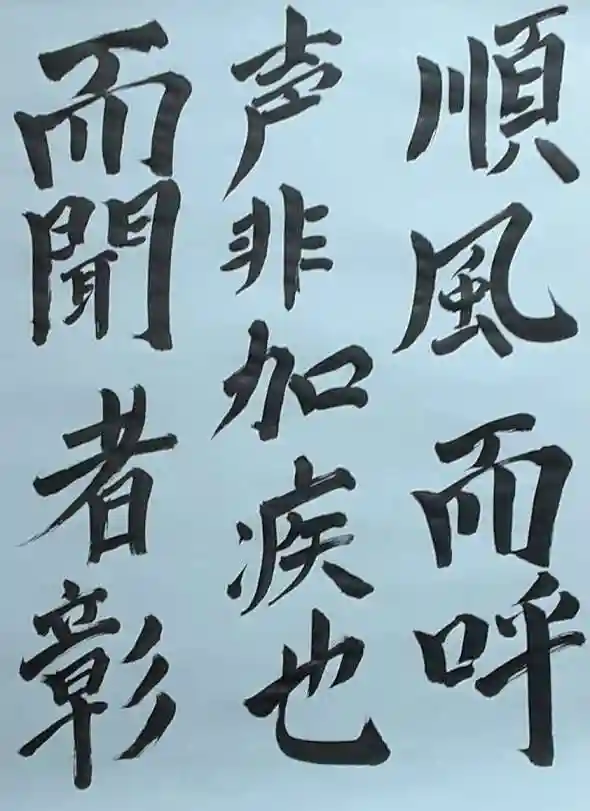 順風而呼
声非加疾也
而聞者彰